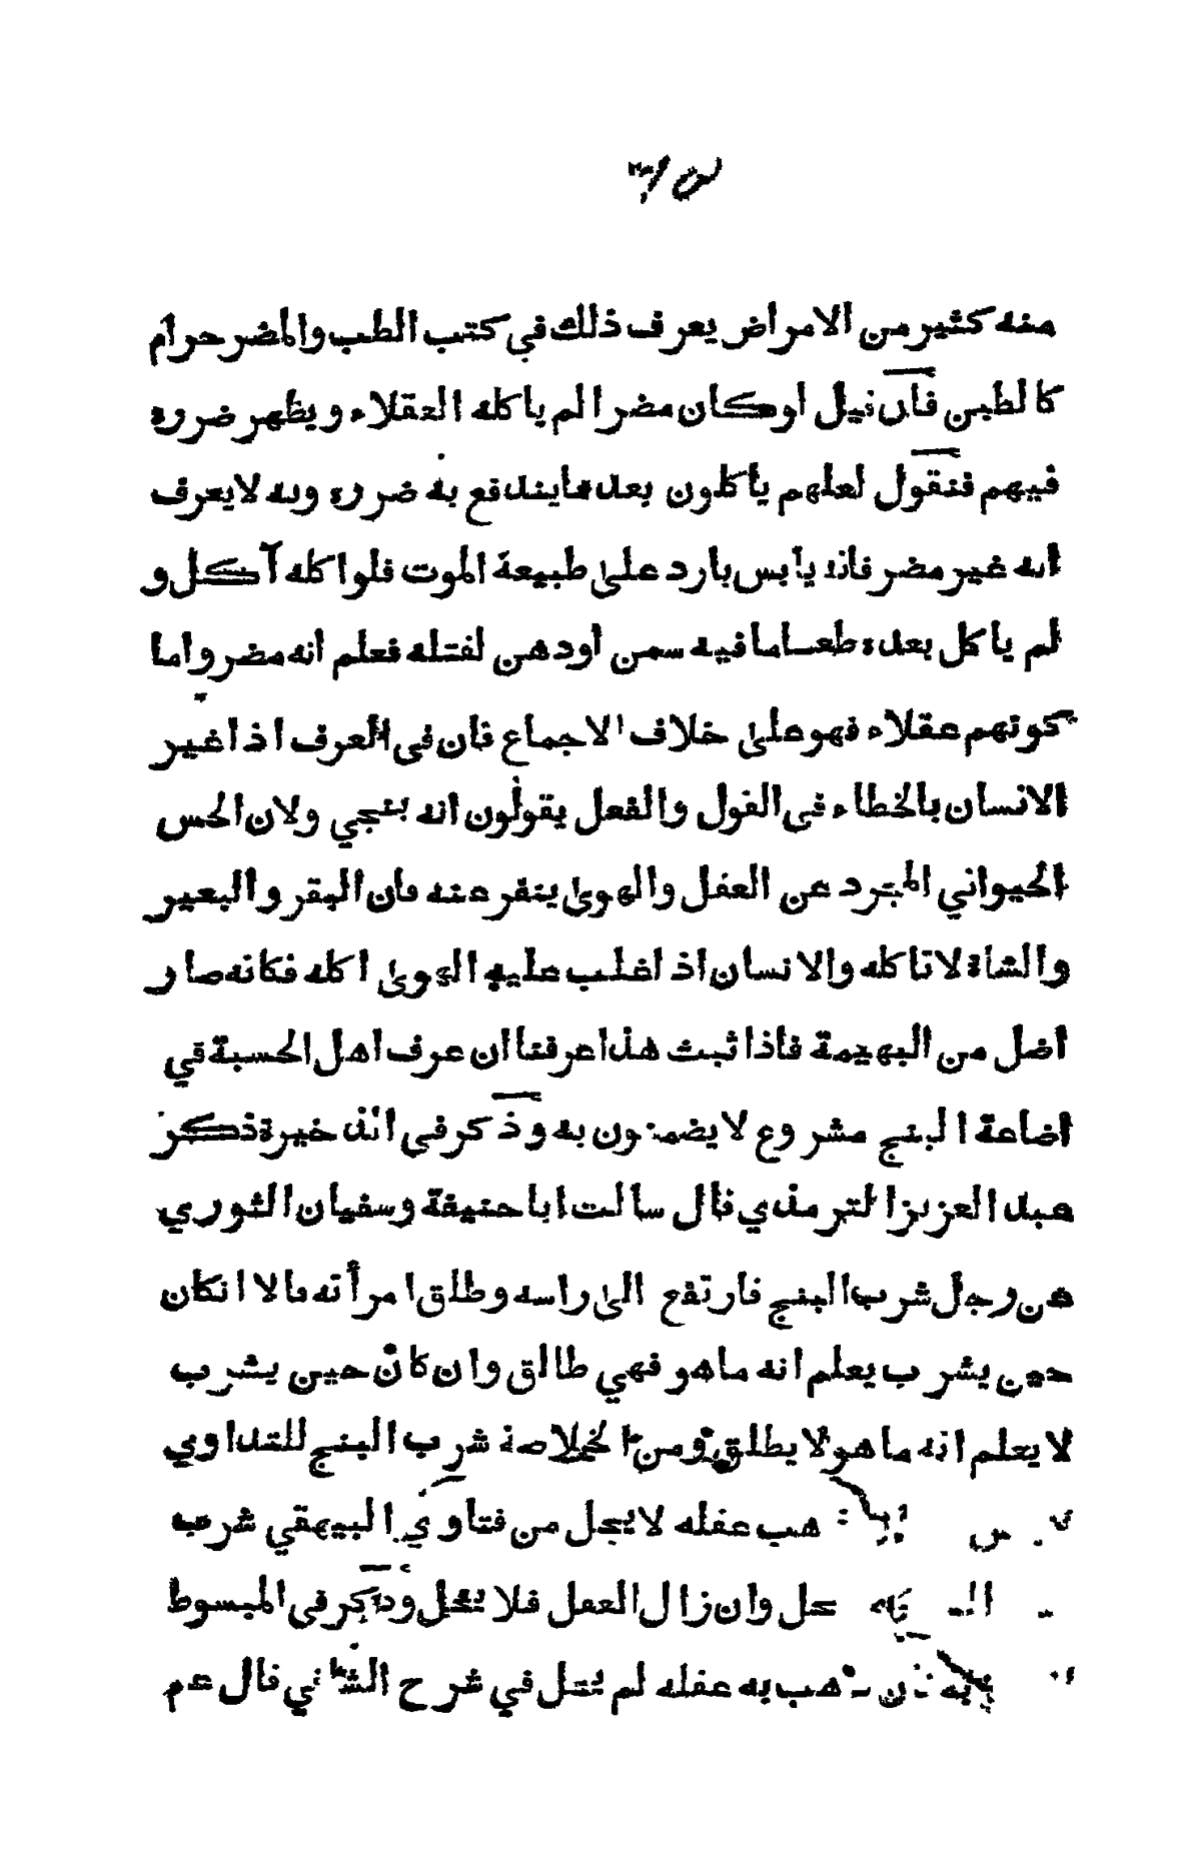 منه كثير من الامراض يعرف ذلك في كتب الطب والمضر حرام
كالطين فان قيل لو كان مضرا لم ياكله العقلاء ويظهر ضرره
فيهم فنقول لعلهم ياكلون بعده ما يندفع به ضرره وبه لا يعرف
انه غير مضر فانه يابس بارد على طبيعة الموت فلو اكله آكل و
لم ياكل بعده طعاما فيه سمن أو دهن لقتله فعلم انه مضر واما
كونهم عقلاء فهو على خلاف الاجماع فان في العرف اذا غير
الانسان بالخطاء في القول والفعل يقولون انه بنجي ولان الحس
الحيواني المجرد عن العقل والهوى ينفر عنه فان البقر والبعير
والشاة لا تاكله والانسان اذا غلب عليه الهوى اكله فكانه صار
اضل من البهيمة فاذا ثبت هذا عرفنا ان عرف اهل الحسبة في
اضاعة البنج مشروع لا يضمنون به وذكر في الذخيرة ذكر
عبد العزيز الترمذي قال سالت ابا حنيفة وسفيان الثوري
عن رجل شرب البنج فارتفع الى راسه وطلق امرأته قالا ان كان
حين يشرب يعلم انه ما هو فهي طالق وان كان حين يشرب
لا يعلم انه ما هو لا يطلق ومن الخلاصة شرب البنج للتداوي
عقله لا يحل من فتاوي البيهقي شرب
حل وان زال العقل فلا يحل وذكر في المبسوط
به عقله لم يحل في شرح الشافي قال عم